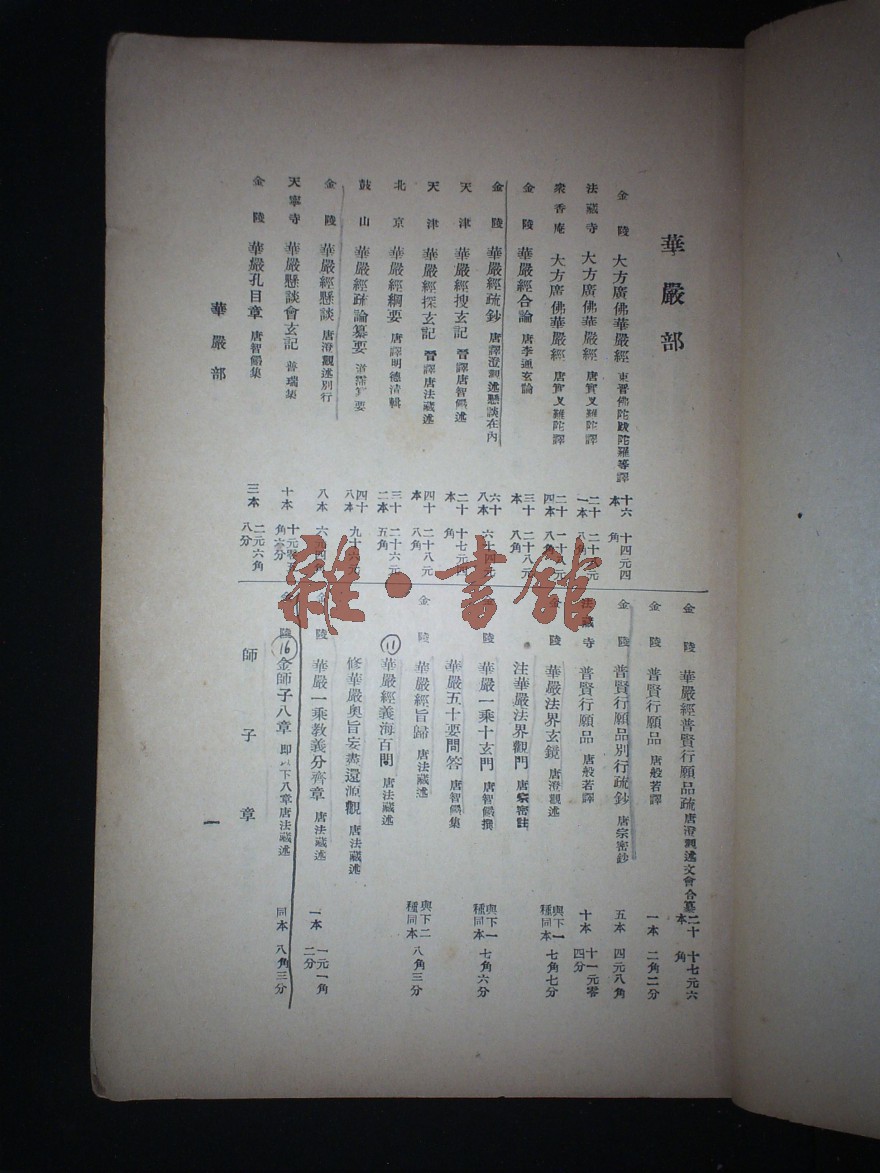 華嚴部
金陵 大方廣佛華嚴經 東晉佛陀跋陀羅等譯 十六本 十四元四角
法藏寺 大方廣佛華嚴經 唐實叉難陀譯 二十一本 二十八元八角
衆香庵 大方廣佛華嚴經 唐實叉難陀譯 二十四本 一十八元八角
金陵 華嚴經合論 唐李通玄論 三十本 二十八元八角
金陵 華嚴經疏鈔 唐譯澄觀述懸談在內 六十八本 六十四元
天津 華嚴經搜玄記 晉譯唐智儼述 二十本 十七元四角
天津 華嚴經探玄記 晉譯唐法藏述 四十本 二十八元八角
北京 華嚴經綱要 唐譯明德清輯 三十二本 二十六元五角
鼓山 華嚴經疏論纂要 道霈 要 四十八本 九十六元
金陵 華嚴經懸談 唐澄觀述別行 八本 六元四角
天寧寺 華嚴懸談會玄記 普瑞集 十本 十元零五角六分
金陵 華嚴孔目章 唐智儼集 三本 二元六角八分
華嚴部
金陵 華嚴經普賢行願品疏 唐澄觀述文會合纂 二十本 十七元六角
金陵 普賢行願品 唐般若譯 一本 二角二分
金陵 普賢行願品別行疏鈔 唐宗密鈔 五本 四元八角
法藏寺 普賢行願品 唐般若譯 十本 十一元零四分
金陵 華嚴法界玄鏡 唐澄觀述 與下一種同本 七角七分
注華嚴法界觀門 唐宗密註
陵 華嚴一乘十玄門 唐智儼撰 與下一種同本 七角六分
華嚴五十要問答 唐智儼集
金陵 華嚴經旨歸 唐法藏述 與下二種同本 八角三分
11 華嚴經義海百門 唐法藏述
修華嚴奧旨妄盡還源觀 唐法藏述
金陵 華嚴一乘教義分齊章 唐法藏述 一本 一元一角二分
金陵 16 金師子八章 即以下八章唐法藏述 同本 八角三分
師子章
一
雜·書館